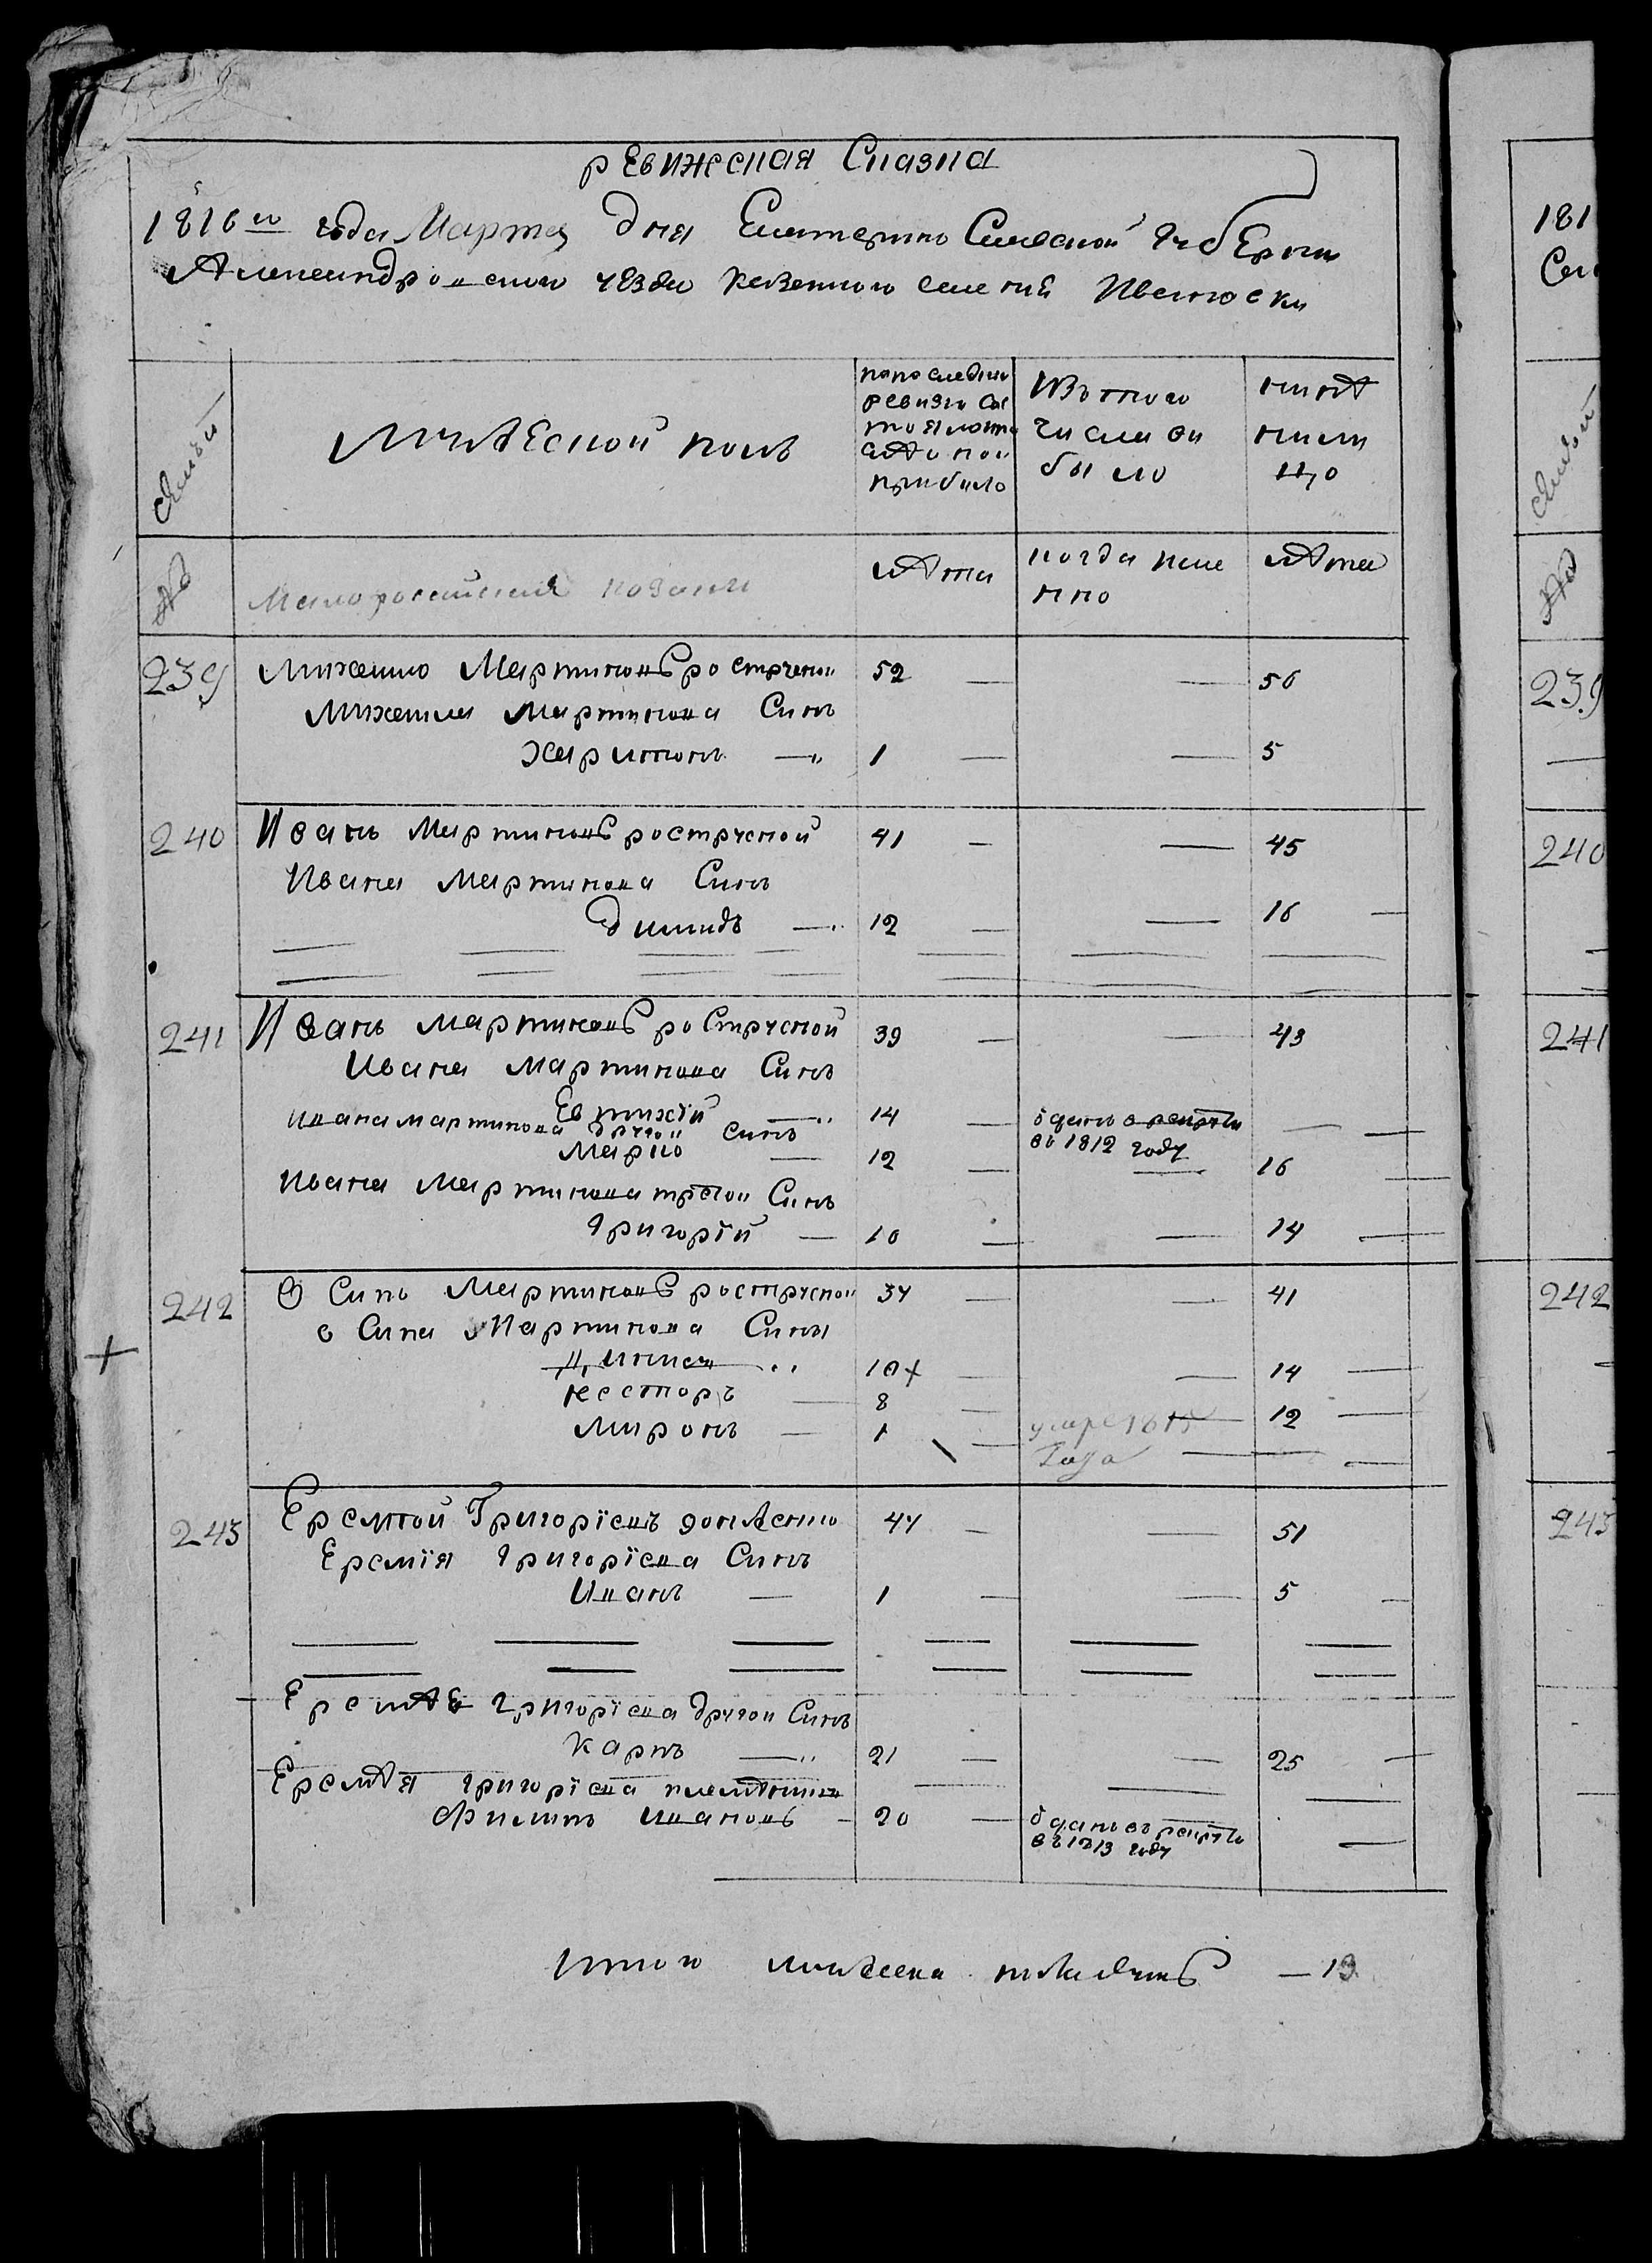 ревижская Сказка
1816го года Марта дня Екатерино Славской Губернии
Александровского уезда казенного селения Ивановки
Семьи
мужеской полъ
по последней ревизии состояло и после того прибыло
Изъ того числа выбыло
ныне на лицо
№
Малороссийския козаки
лѣта
когда именно
лѣта
239 Михайло Мартиновъ ростручной 52 — — 56
Михайла Мартинова Синъ
Харитонъ — 1 — — 5
240 Иванъ Мартиновъ ростручной 41 — — 45
Ивана Мартинова Синъ
Димидъ — 12 — — 16 —
241 Иванъ Мартиновъ роСтручной 39 — — 43
Ивана Мартинова Синъ
Евтихїй — 14 — оданъ в рекруты — —
въ 1812 году
Ивана мартинова другой синъ
Марко — 12 — — 16 —
Ивана Мартинова третой Синъ
Григорїй — 10 — — 14 —
242 оСипъ Мартиновъ ростручной 37 — — 41
оСипа Мартинова Сины
10 + — — 14 —
несторъ — 8 — — 12 —
Миронъ — 1 — умре 1815 — —
Года
243 Еремѣй Григорїевъ 47 — — 51
Еремїя Григорїева Синъ
Иванъ — 1 — — 5 —
Еремѣя Григорїева другой Синъ
Карпъ — 21 — — 25 —
Еремѣя григорїева племѣнник
Филипъ Ивановъ — 20 — оданъ въ рекруты —
въ 1813 году
Итого мужеска — 13
181
Се
Семьи
№
239
240
241
242
243